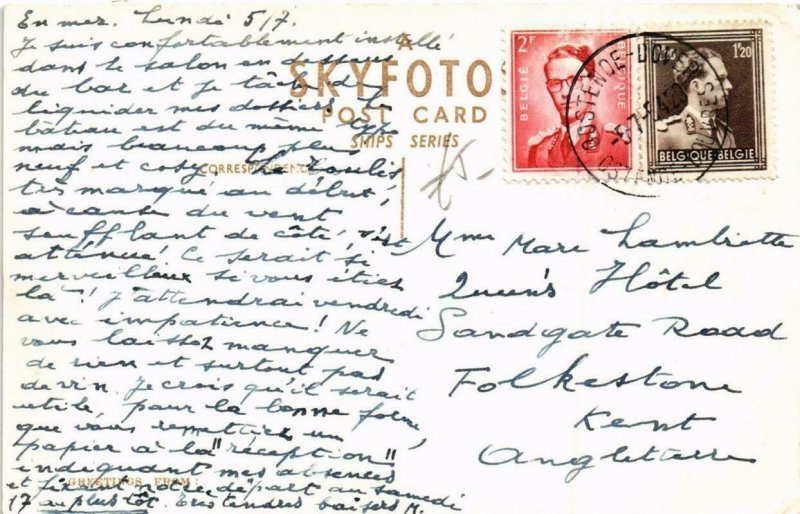 En mer. Lundi 5/7.
Je suis confortablement installé
dans le salon en dessous
du bar et je tâche de
liquider mes dossiers. Le
bâteau est du même type
mais beaucoup plus
neuf et cosy. Le roulis
très marqué au début,
à cause du vent
soufflant de côté, s'est
atténué! Ce serait si
merveilleux si vous étiez
là! J'attendrai vendredi
avec impatience! Ne
vous laissez manquer
de rien et surtout pas
de vin. Je crois qu'il serait
utile, pour la bonne forme,
que vous remettiez un
papier à la "réception"
indiquant mes absences
et fixant votre départ au samedi
17 au plus tôt. Très tendres baisers M.
A
SKYFOTO
POST CARD
SHIPS SERIES
CORRESPONDENCE
GREETINGS FROM:
2F
BELGIE
BELGIQUE
1F20
BELGIQUE-BELGIE
OOSTENDE-DOVER
Mme Marc Lambrette
Queen's Hôtel
Sandgate Road
Folkestone
Kent
Angleterre